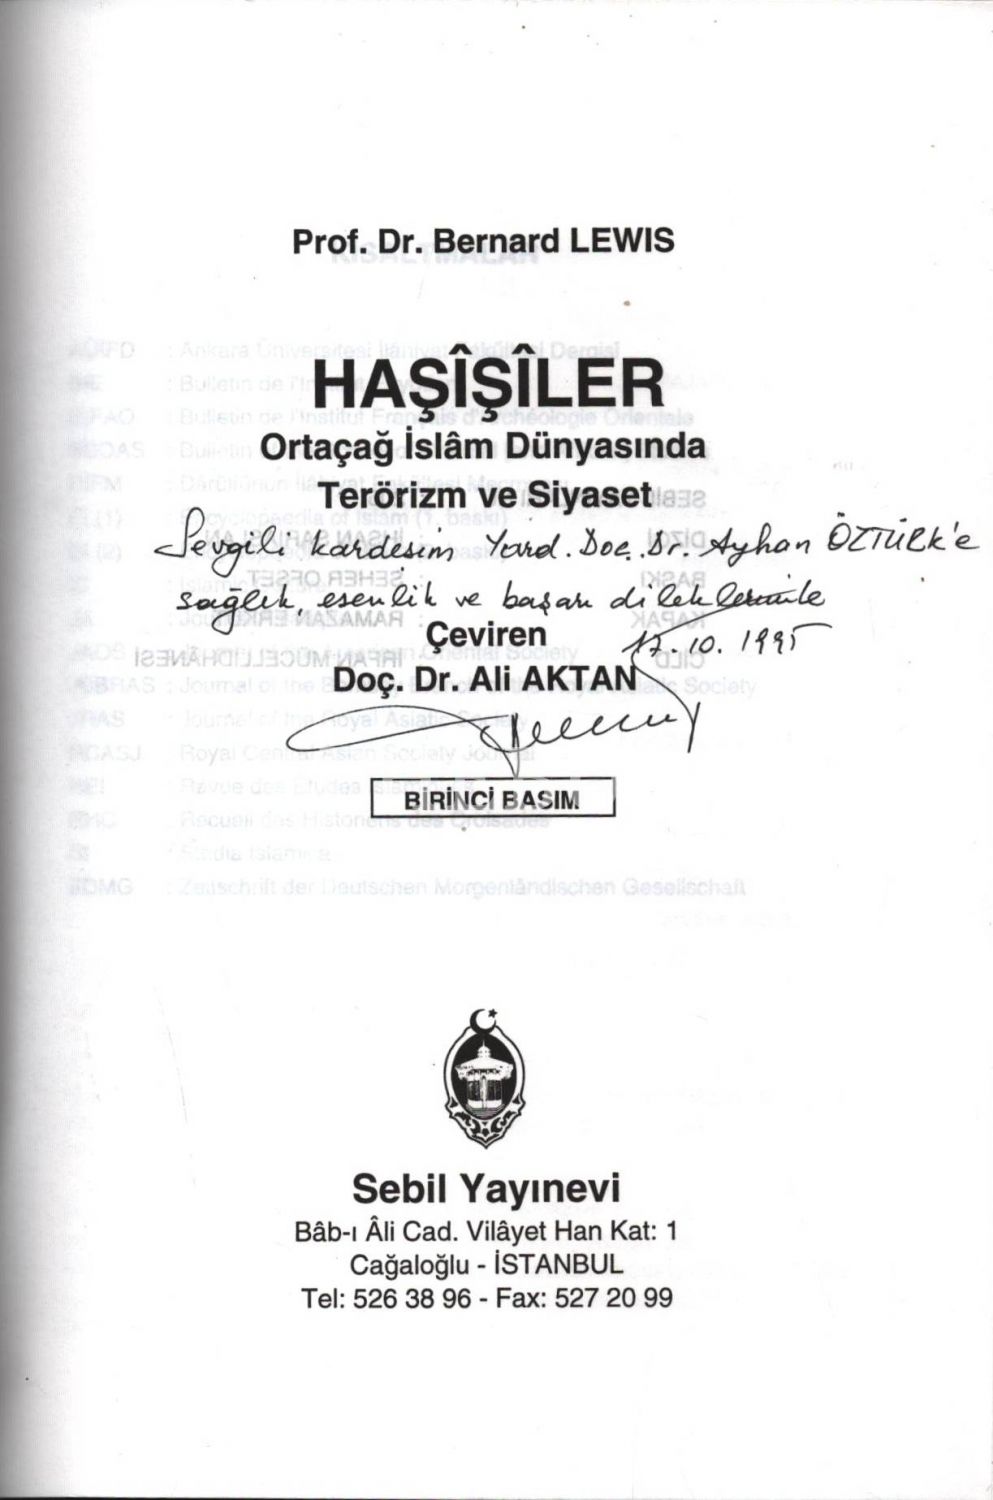 Prof. Dr. Bernard LEWIS
HAŞÎŞÎLER
Ortaçağ İslâm Dünyasında
Terörizm ve Siyaset
Sevgili kardeşim Yard. Doç. Dr. Ayhan ÖZTÜRK'e
sağlık, esenlik ve başarı dileklerimle
17.10.1995
Çeviren
Doç. Dr. Ali AKTAN
BİRİNCİ BASIM
Sebil Yayınevi
Bâb-ı Âli Cad. Vilâyet Han Kat: 1
Cağaloğlu - İSTANBUL
Tel: 526 38 96 - Fax: 527 20 99